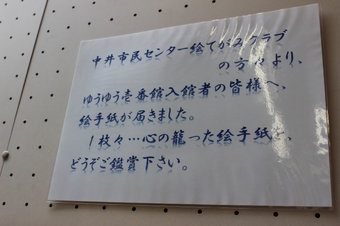 中井市民センター絵てがみクラブ
の方々より、
ゆうゆう壱番館入館者の皆様へ、
絵手紙が届きました。
１枚々…心の籠った絵手紙を、
どうぞご鑑賞下さい。